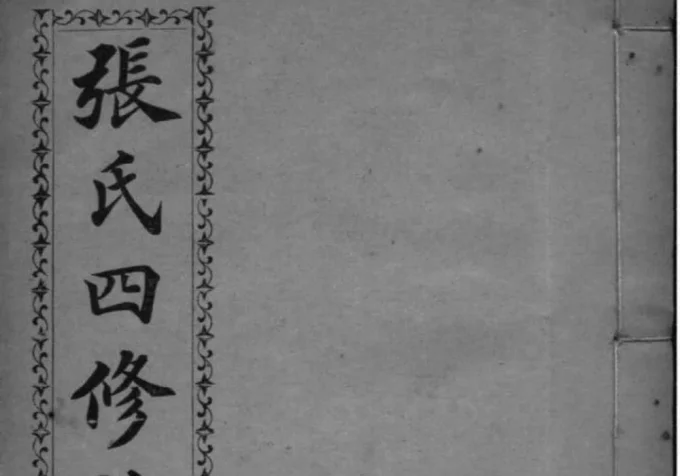 張氏四修